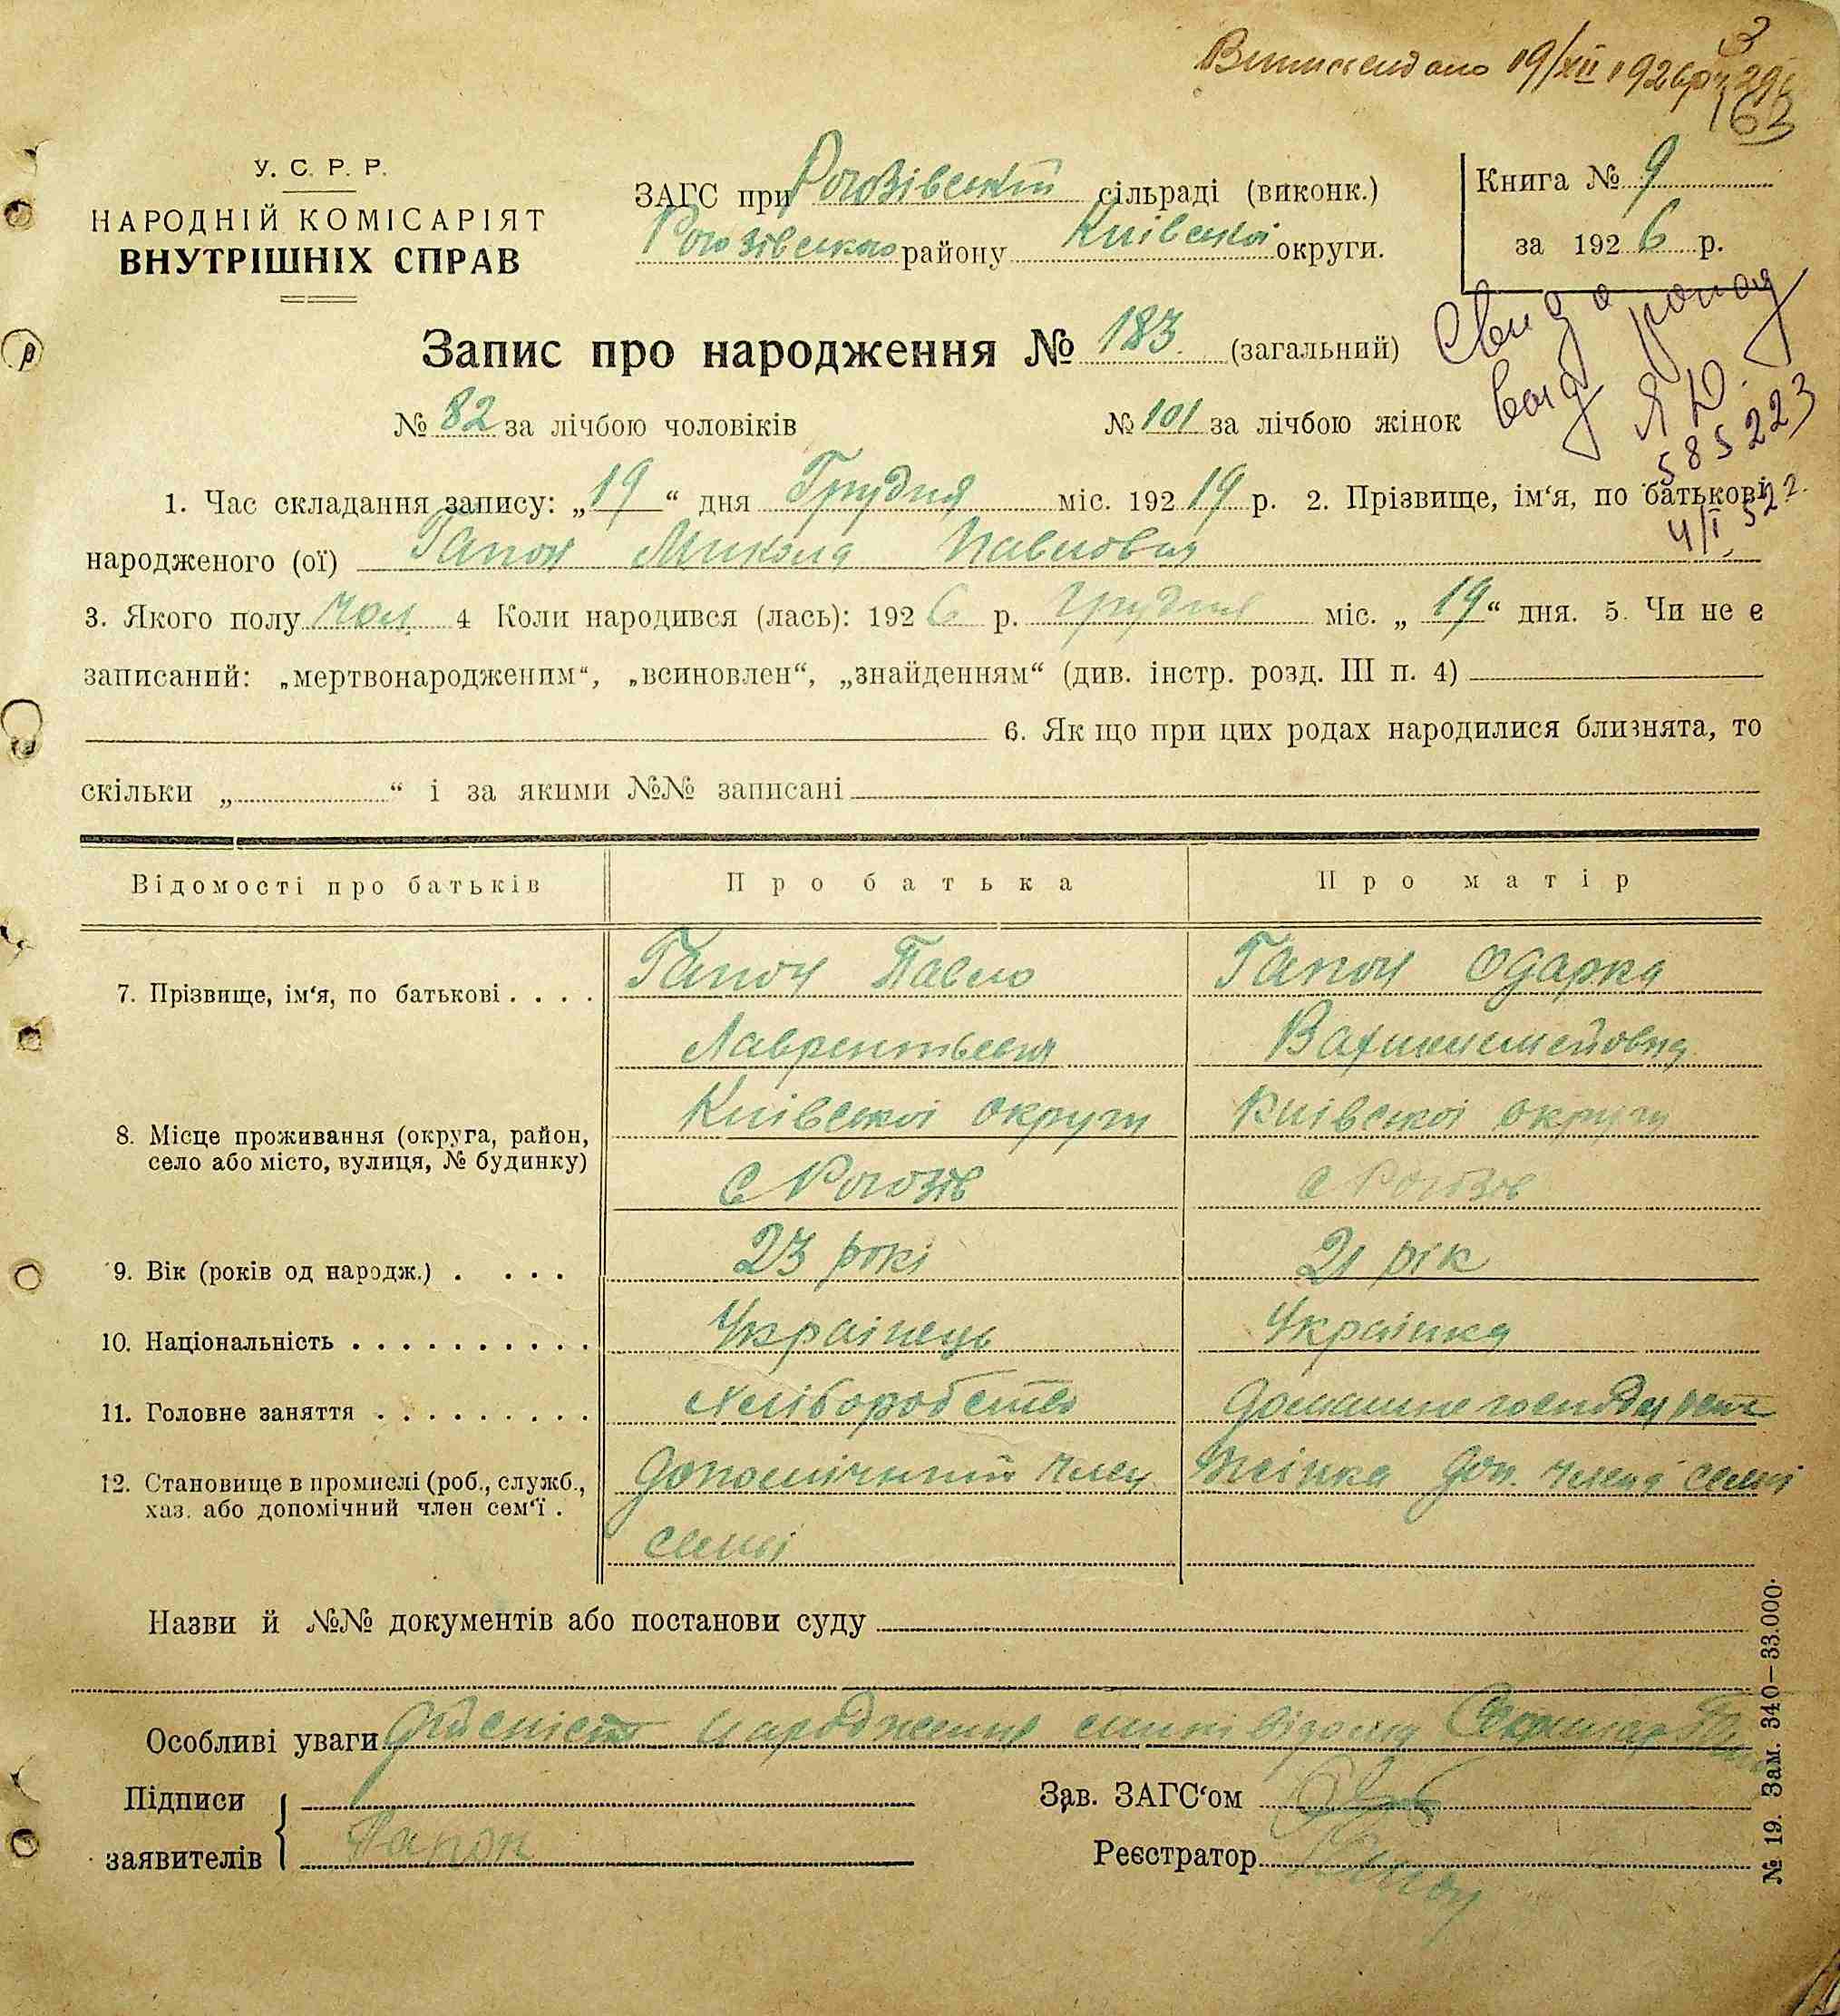 19/XII 1926 р
163
У. С. Р. Р.
НАРОДНІЙ КОМІСАРІЯТ
ВНУТРІШНІХ СПРАВ
ЗАГС при Рогозівський сільраді (виконк.)
Рогозівського району Київської округи.
Книга № 9
за 1926 р.
Запис про народження № 183 (загальний)
Свид о рожд
выд ЯЮ.
585223
4/I 52 г.
№ 82 за лічбою чоловіків № 101 за лічбою жінок
1. Час складання запису: „19“ дня Грудня міс. 19219 р. 2. Прізвище, ім‘я, по батькові
народженого (ої) Гапон Микола Павлович
3. Якого полу чол. 4 Коли народився (лась): 1926 р. Грудня міс. „19“ дня. 5. Чи не є
записаний: „мертвонародженим“, „всиновлен“, „знайденням“ (див. інстр. розд. III п. 4)
6. Як що при цих родах народилися близнята, то
скільки „ “ і за якими №№ записані
Відомості про батьків Про батька Про матір
7. Прізвище, ім‘я, по батькові . . . . Гапон Павло Гапон Одарка
Лаврентьевич
8. Місце проживання (округа, район, село або місто, вулиця, № будинку) Київскоі округи Київскоі округи
с Рогозів с Рогозов
9. Вік (років од народж.) . . . . 23 рокі 21 рік
10. Національність . . . . . . . . . . Украінець Украінка
11. Головне заняття . . . . . . . . . Хліборобство домашне господарст
12. Становище в промислі (роб., служб., хаз. або допомічний член сем‘ї . Допомічний член Жінка доп. члена семі
семі
Назви й №№ документів або постанови суду
Особливі уваги Дійсність народження мині відому Секретар
Підписи
заявителів Гапон
Зав. ЗАГС‘ом
Реєстратор
№ 19. Зам. 340—33.000.